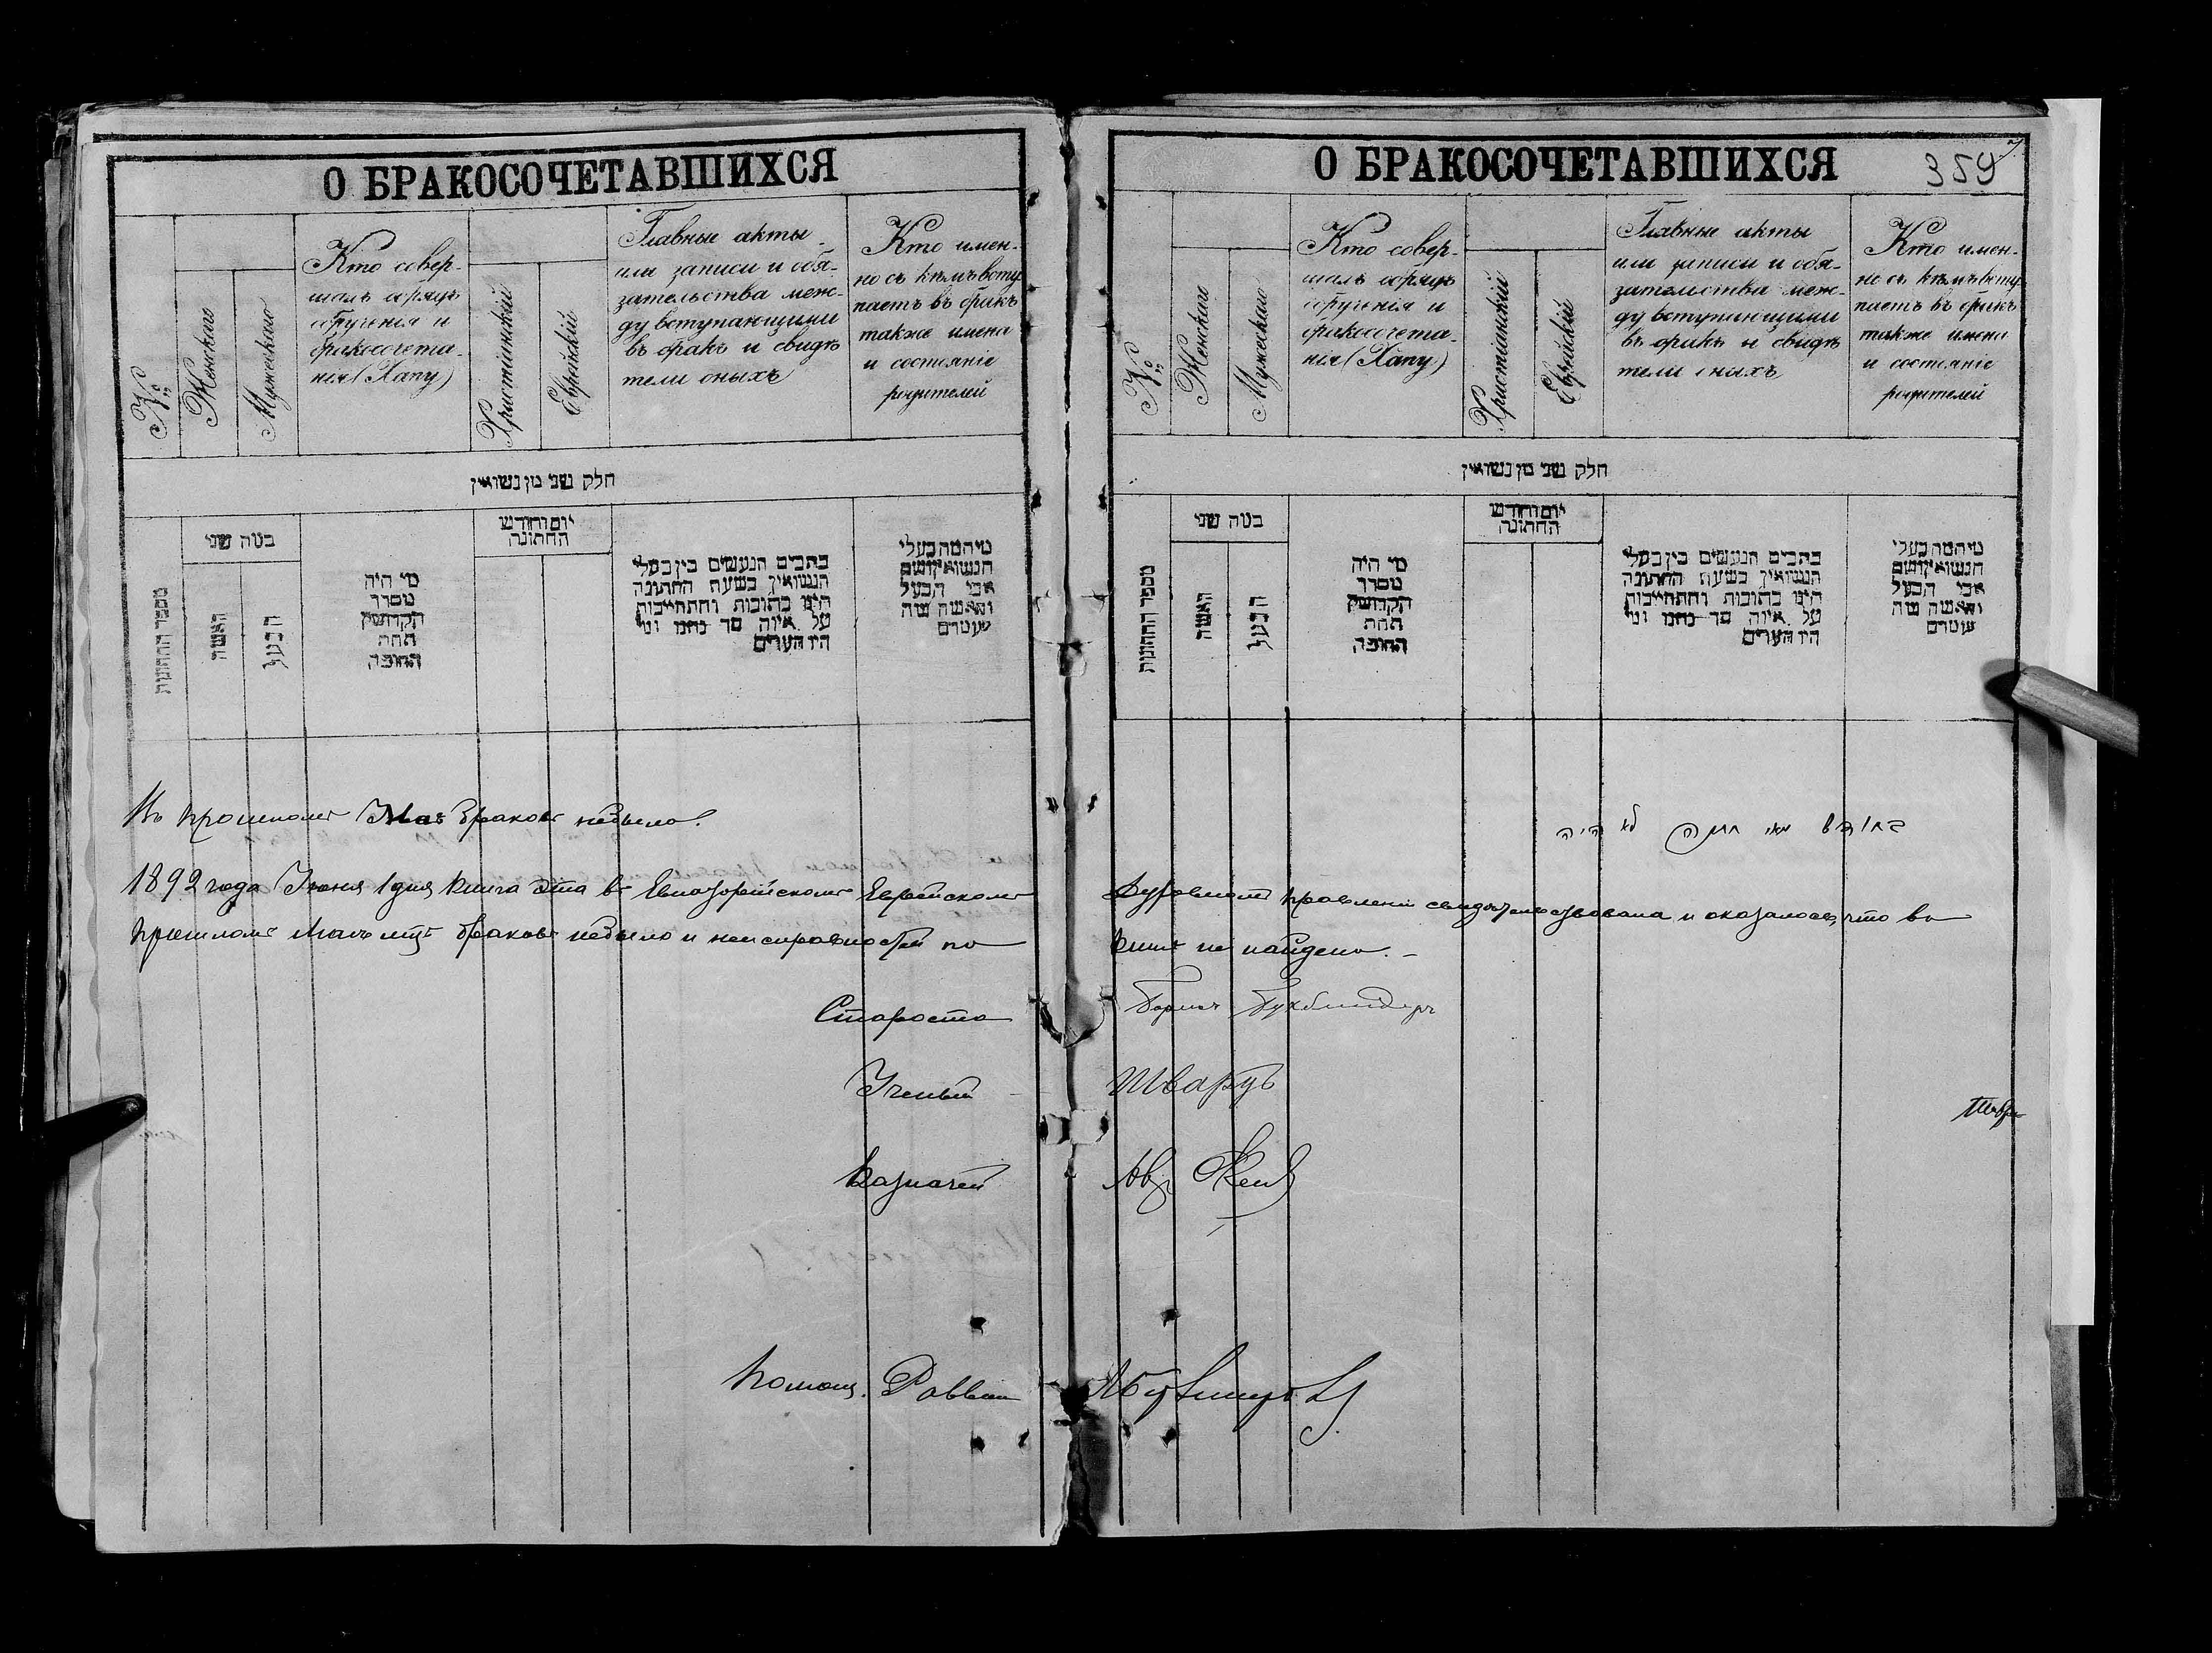 О БРАКОСОЧЕТАВШИХСЯ
№
Женскаго
Мужескаго
Кто совер-
шалъ обрядъ
обрученія и
бракосочета-
нія (Хапу)
Христіанскій
Еврейскій
Главные акты
или записи и обя-
зательства меж-
ду вступающими
въ бракъ и свидѣ
тели оныхъ
Кто имен-
но съ кѣмъ всту
паетъ въ бракъ
также имена
и состояніе
родителей
חלק שני מן נשואין
מספר החתונות
כמה שני
האשה
הבעל
מי היה
מסדר
הקדושין
תחת
החופה
יום וחודש
החתונה
כתבים הנעשים בין בעלי
הנשואין בשעת החתונה
היינו כתובות והתחייבות
על איזה סך נתנו ומי
היו העדים
מי המה בעלי
הנשואין ושם
אבי הבעל
והאשה מה
עוטרים
Въ прошломъ Маѣ браковъ небыло.
1892 года Іюня 1 дня книга эта въ Евпаторійскомъ Еврейскомъ
прошломъ Маѣ мцѣ браковъ небыло и неисправностей по
Староста
Ученый
Казначей
Помощ. Раввин
О БРАКОСОЧЕТАВШИХСЯ
359
№
Женскаго
Мужескаго
Кто совер-
шалъ обрядъ
обрученія и
бракосочета-
нія (Хапу)
Христіанскій
Еврейскій
Главные акты
или записи и обя-
зательства меж-
ду вступающими
въ бракъ и свидѣ
тели оныхъ
Кто имен-
но съ кѣмъ всту
паетъ въ бракъ
также имена
и состояніе
родителей
חלק שני מן נשואין
מספר החתונות
כמה שני
האשה
הבעל
מי היה
מסדר
הקדושין
תחת
החופה
יום וחודש
החתונה
כתבים הנעשים בין בעלי
הנשואין בשעת החתונה
היינו כתובות והתחייבות
על איזה סך נתנו ומי
היו העדים
מי המה בעלי
הנשואין ושם
אבי הבעל
והאשה מה
עוטרים
בחודש מאי לא היה
Духовномъ правленіи свидѣтельствована и оказалось, что въ
книгѣ не найдено. -
Борисъ Букбиндеръ
Шварцъ